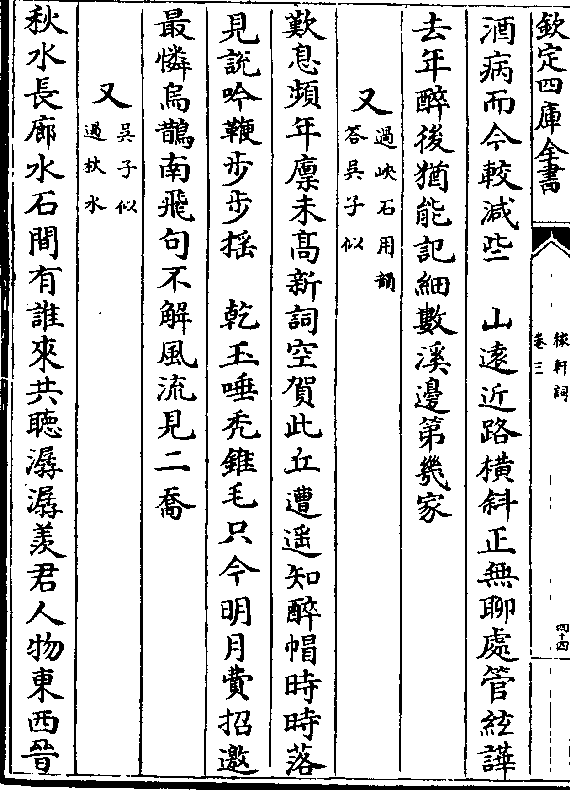 欽定四庫全書
稼軒詞
卷三
四十四
酒病而今較減些　山遠近路橫斜正無聊處管絃譁
去年醉後猶能記細數溪邊第幾家
又
過峽石用韻
答吳子似
歎息頻年廪未髙新詞空賀此丘遭遥知醉帽時時落
見説吟鞭步步揺　乾玉唾禿錐毛只今明月費招邀
最憐烏鵲南飛句不解風流見二喬
又
吳子似
過秋水
秋水長廊水石間有誰來共聽潺潺羨君人物東西晉